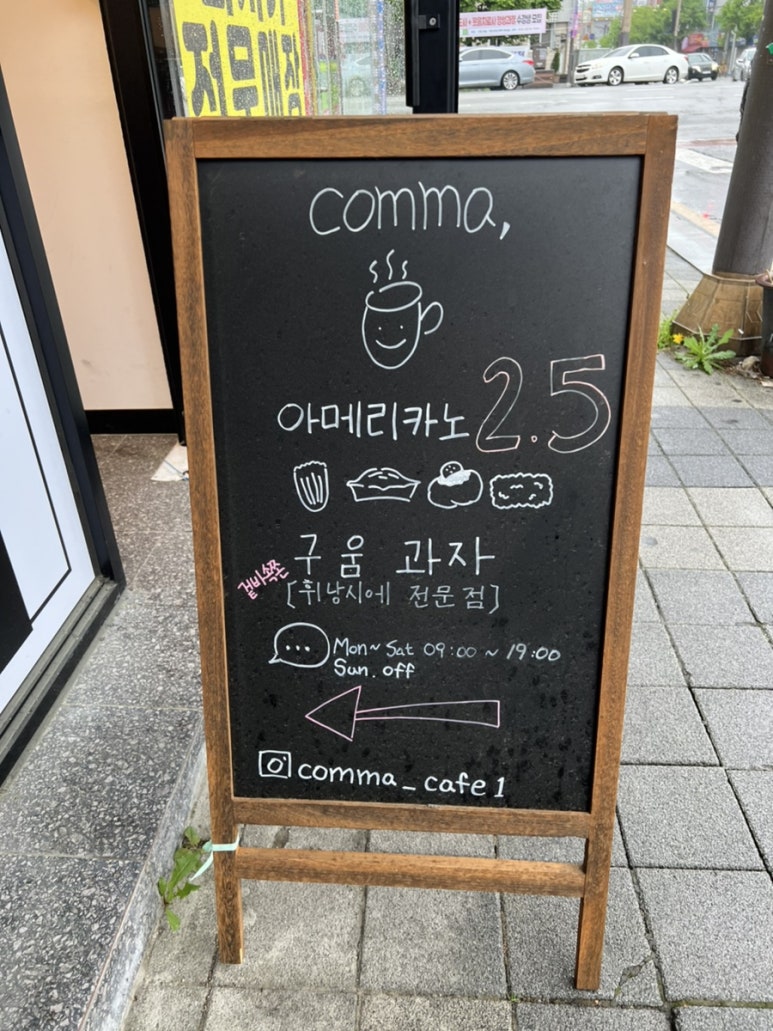 comma,
아메리카노 2.5
구움 과자
겉바속쫀
[휘낭시에 전문점]
Mon~Sat 09:00 ~ 19:00
Sun. off
comma_cafe1